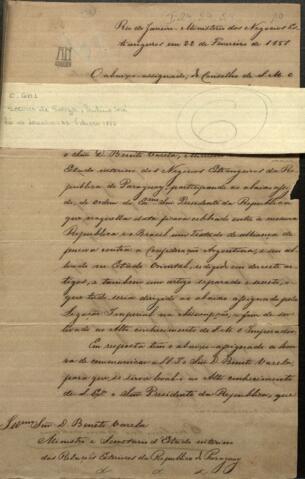 Rio de Janeiro. Ministerio dos Negocios Es-
trangeiros em 22 de Fevereiro de 1851
O abaixo assignado, do Conselho de S. M. o
Soares de Souza, Paulino José
Rio de Janeiro, 22 Febrero 1851
o Snr. D. Benito Varela, Ministro
Estado interino dos Negocios Estrangeiros da Re-
publica do Paraguay, participando ao abaixo assig-
nado, de ordem do Exmo. Snr. Presidente da Republica
que naquella data fora celebrado entre a mesma
Republica e o Brasil um tratado de alliança de-
fensiva contra a Confederação Argentina, e seu al-
liado no Estado Oriental, redigido em desesete ar-
tigos, e tambem um artigo separado e secreto, e
que tudo seria dirigido ao abaixo assignado pela
Legação Imperial na Assumpção, a fim de ser
levado ao Alto conhecimento de S. M. o Imperador.
Em resposta tem o abaixo assignado a honra
de communicar a S. Exa. o Snr. D. Benito Varela
para que se sirva leval-o ao Alto conhecimento
de S. Exa. o Snr. Presidente da Republica, que
Illmo. Snr. D. Benito Varela
Ministro e Secretario d'Estado interino
das Relações Exteriores da Republica do Paraguay